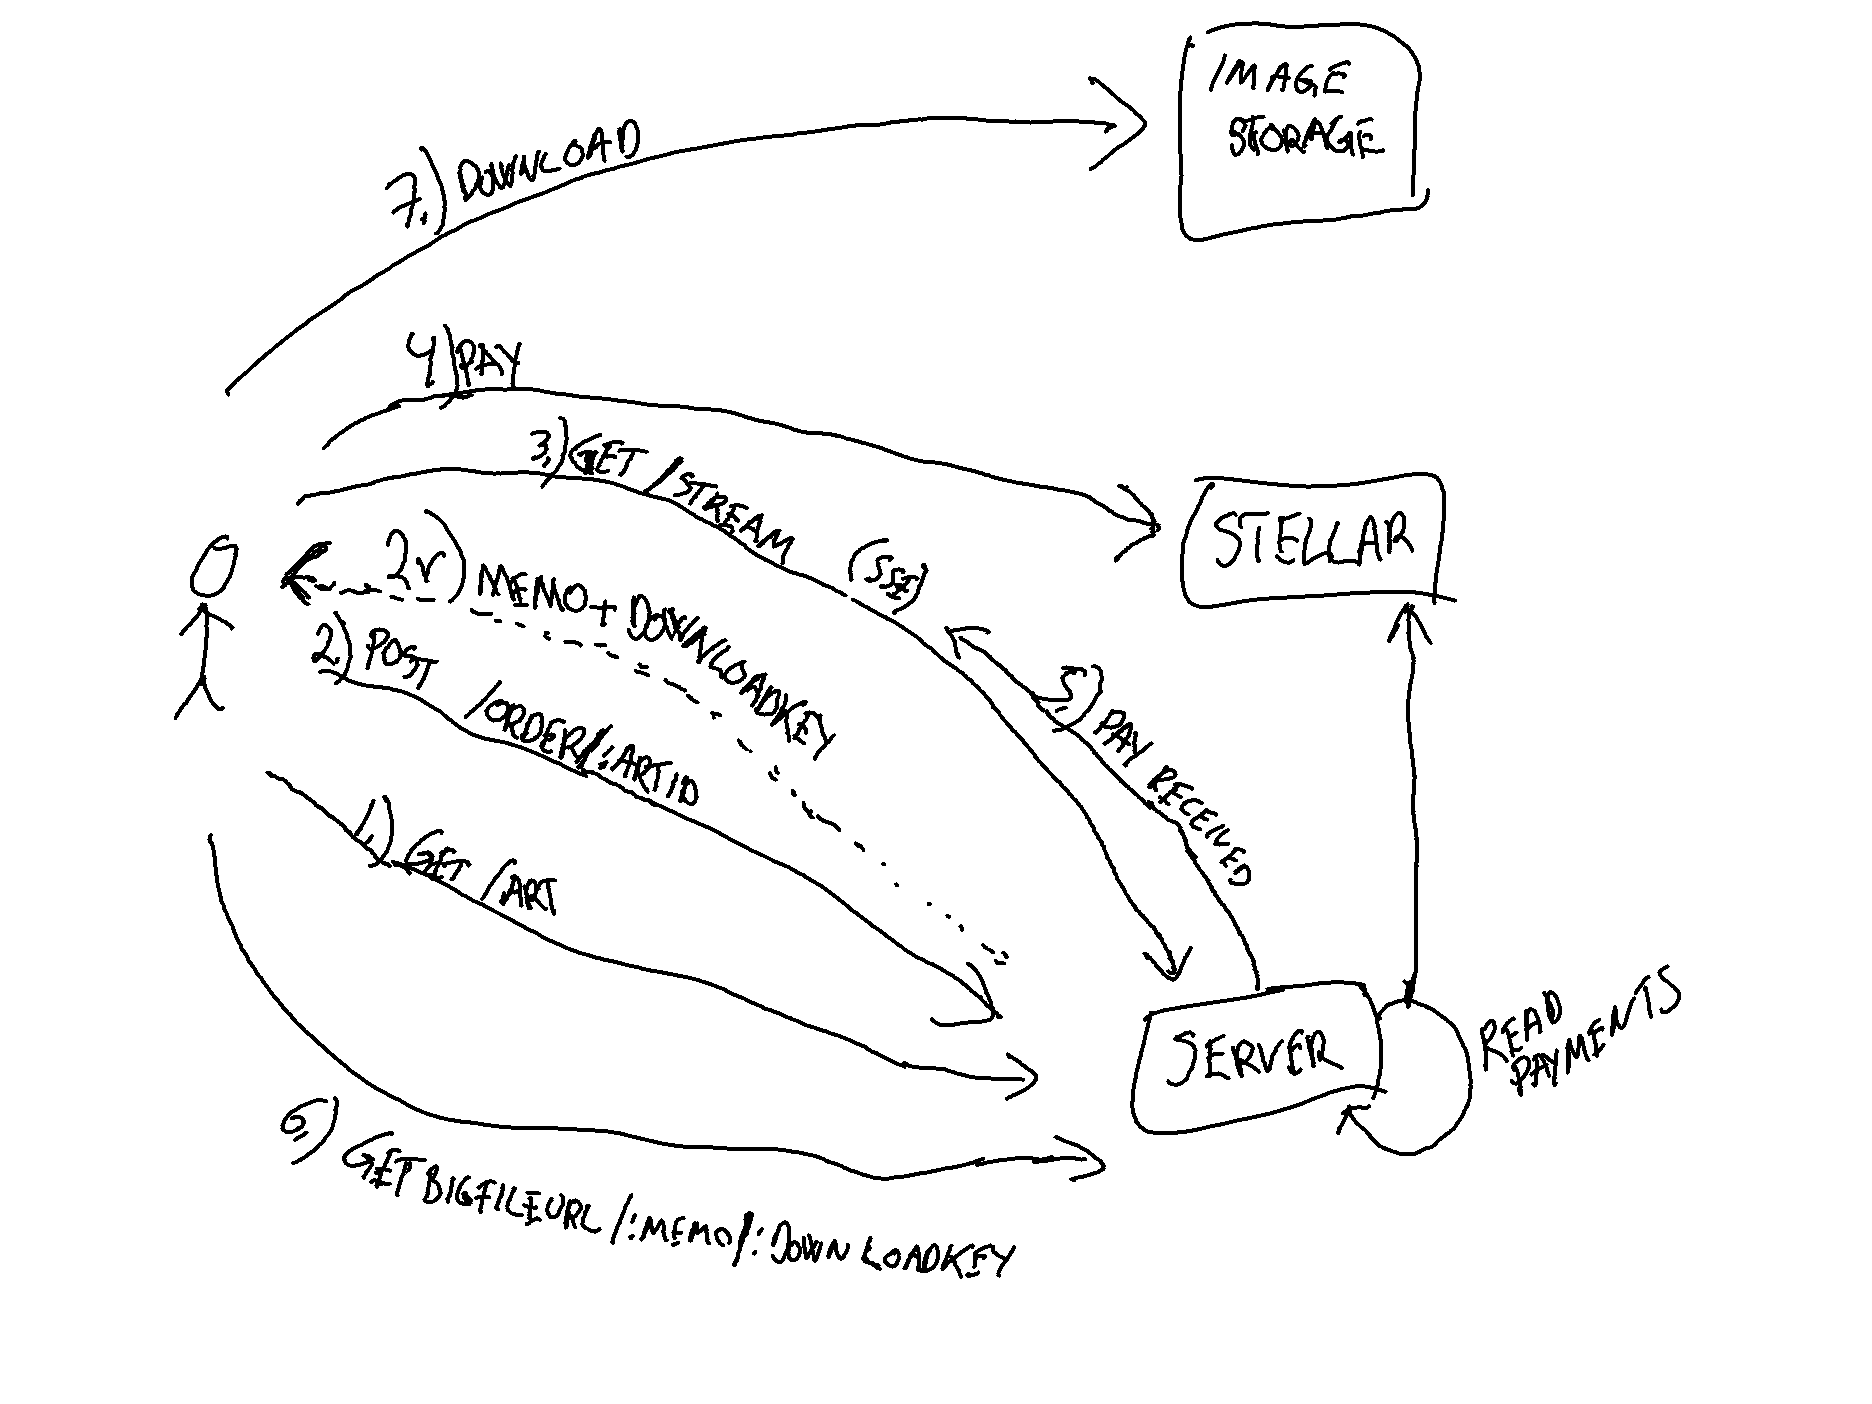 IMAGE
STORAGE
7.) DOWNLOAD
4) PAY
3.) GET /STREAM (SSE)
STELLAR
2r) MEMO + DOWNLOADKEY
2.) POST /ORDER/:ARTID
5.) PAY RECEIVED
1.) GET /ART
SERVER
READ
PAYMENTS
6.) GET BIGFILEURL/:MEMO/:DOWNLOADKEY